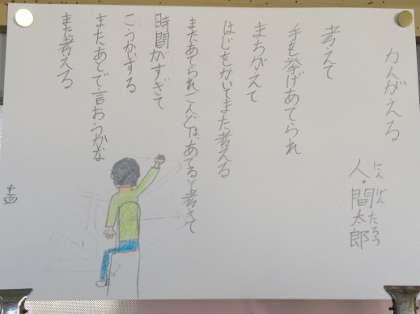 かんがえる
にんげんたろう
人・間太郎
考えて
手を挙げあてられ
まちがえて
はじをかいてまた考える
またあてられこんどは、あてると考えて
時間がすぎて
こうかいする
またあとで言おうかな
また考える